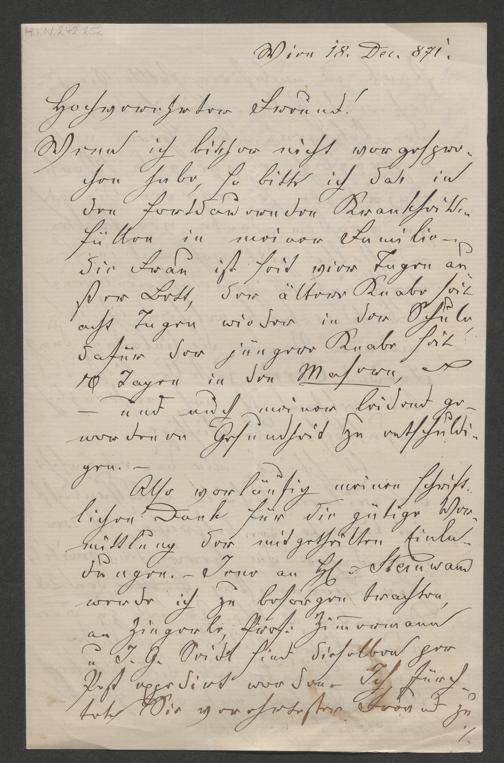 H.I.N. 242.252
Wien 18. Dec. 871.
Hochverehrter Freund!
Wenn ich bisher nicht vorgespro-
chen habe, so bitte ich das in
den fortdauernden Krankheits-
fällen in meiner Familie –
die Frau ist seit vier Tagen au-
ßer Bett, der ältere Knabe seit
acht Tagen wieder in der Schule,
dafür der jüngere Knabe seit
10 Tagen in den Masern,
– und auch meiner leidend ge-
wordenen Gesundheit zu entschuldi-
gen. –
Also vorläufig meinen schrift-
lichen Dank für die gütige Ver-
mittlung der mitgetheilten Einla-
dungen. – Jene an H. Steinwand
werde ich zu besorgen trachten,
an Zingerle, Prof. Zimmermann
u. J. G. Seidl sind dieselben per
Post expedirt worden. Ich fürch-
tete Sie verehrtester Freund zu
./.